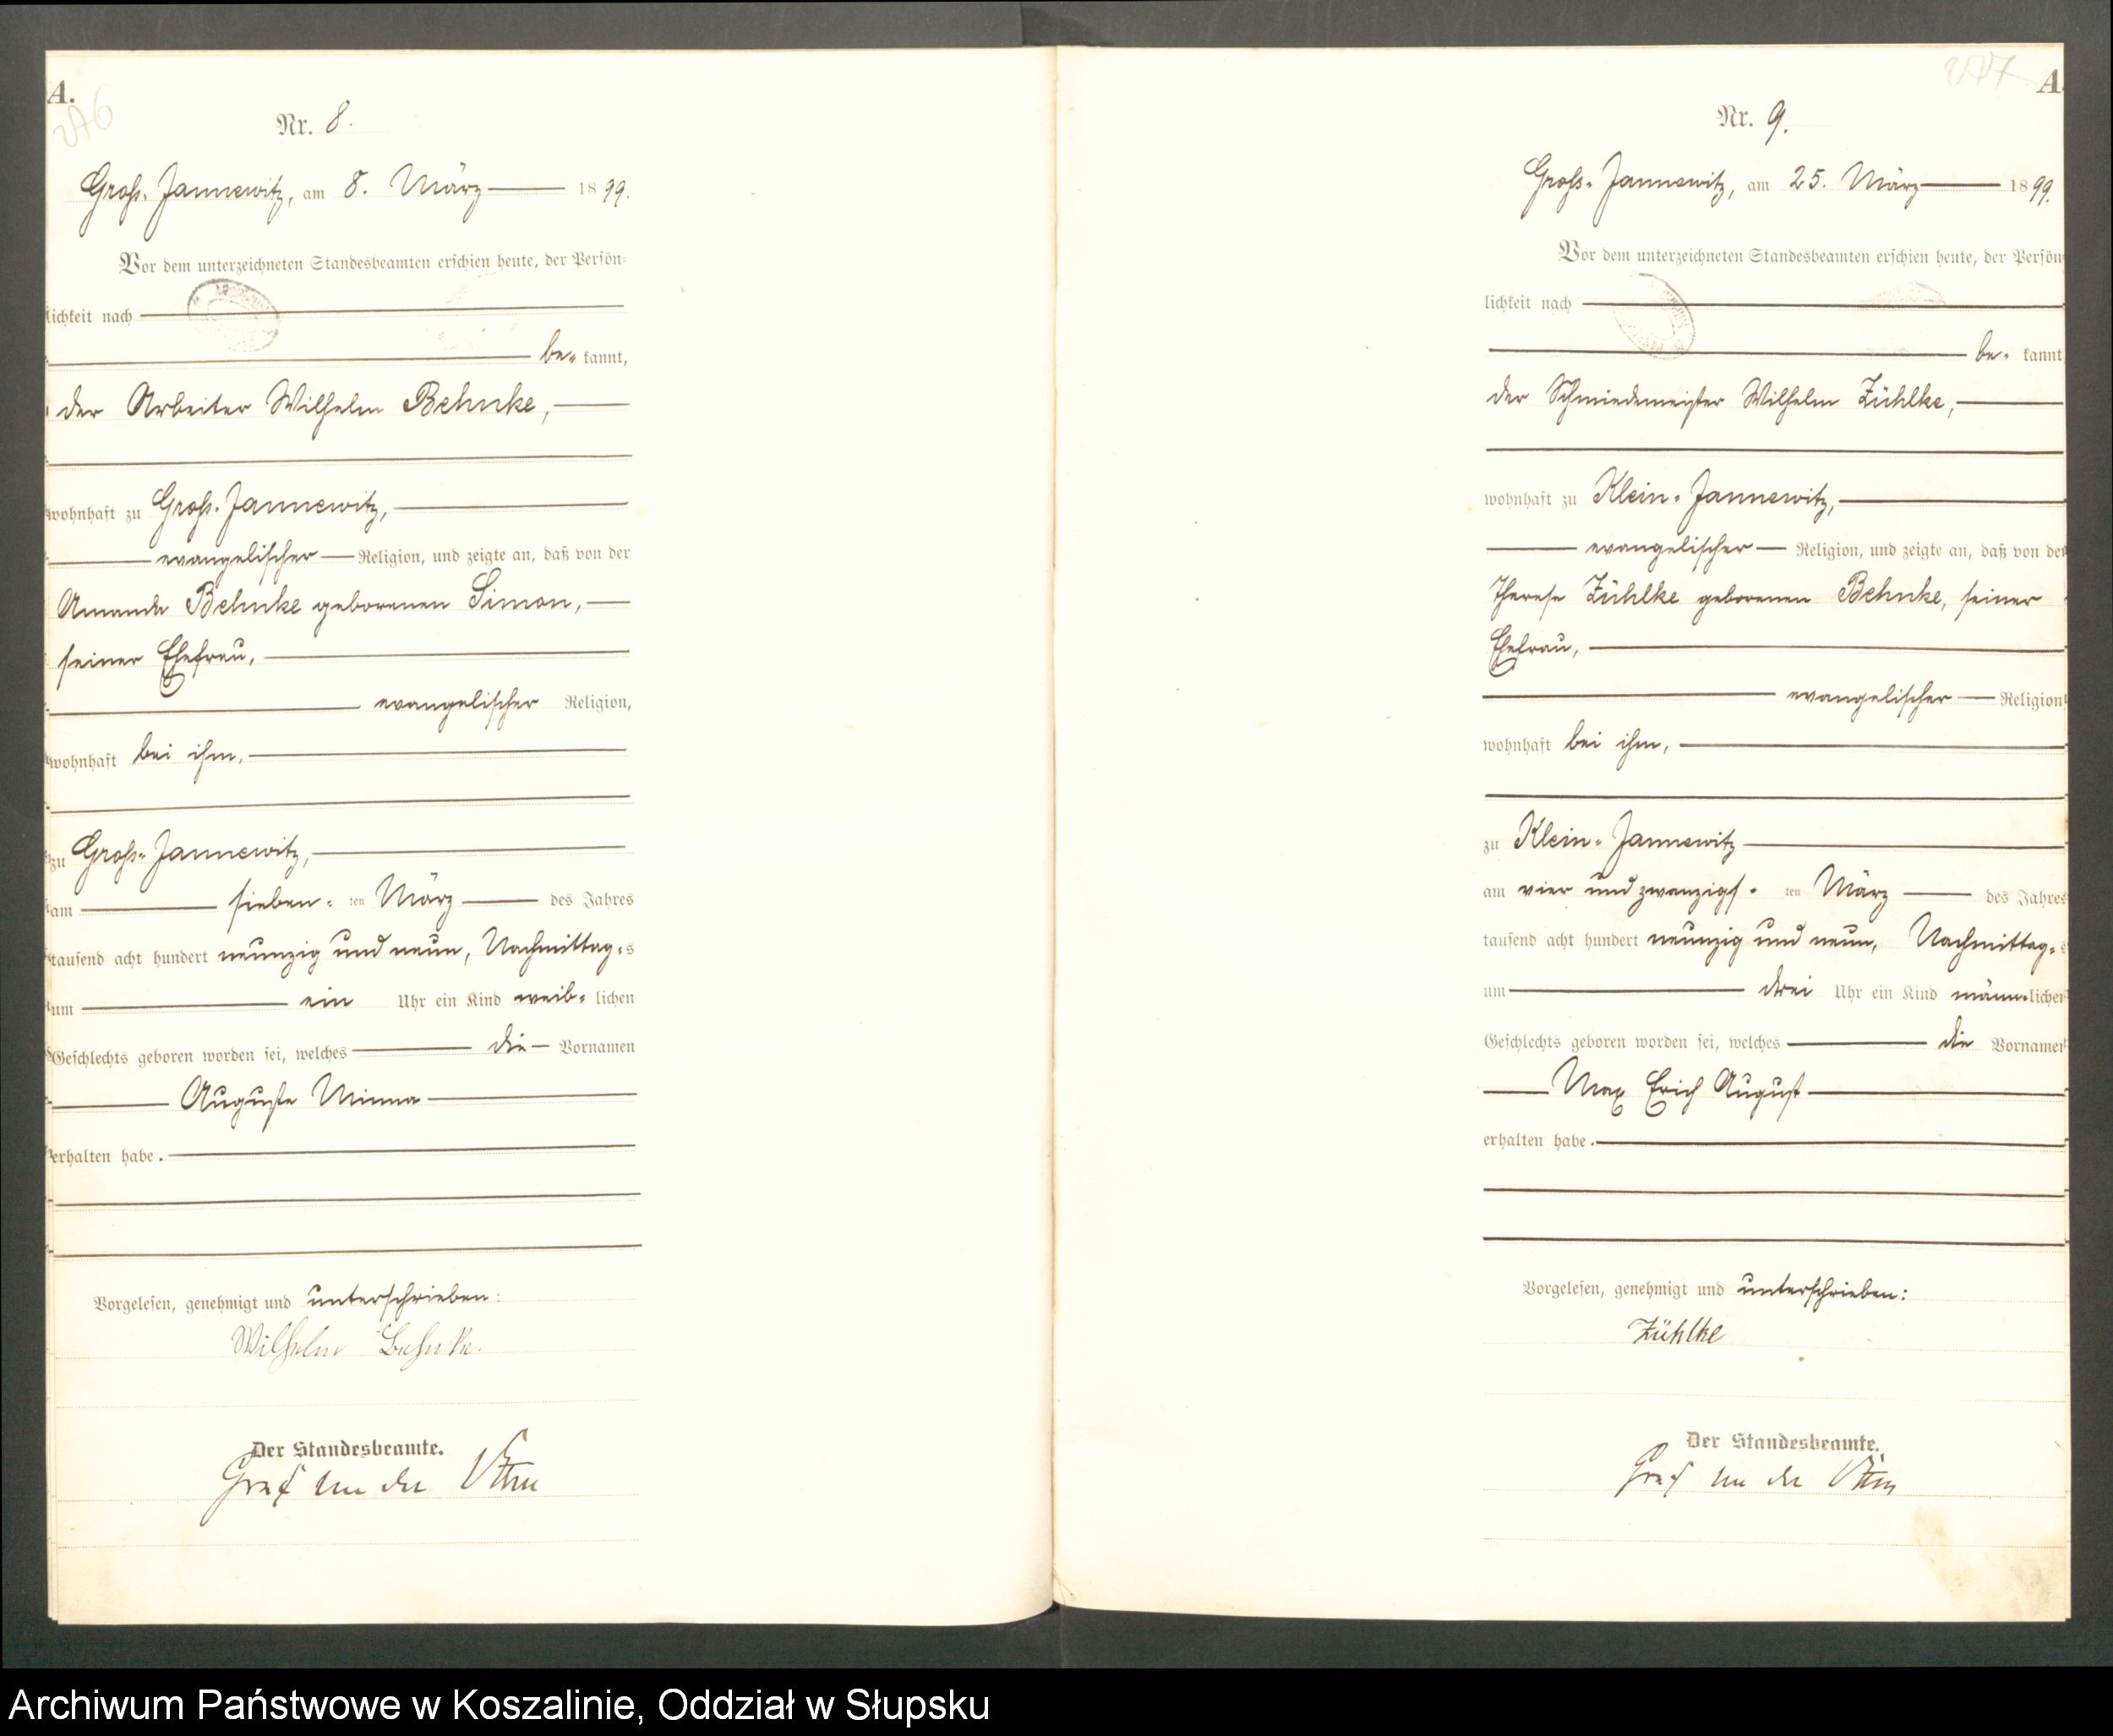 A.
Nr. 8.
Groß-Jannewitz, am 8. März 1899.
Vor dem unterzeichneten Standesbeamten erschien heute, der Persön-
lichkeit nach
be- kannt,
der Arbeiter Wilhelm Behnke,
wohnhaft zu Groß-Jannewitz,
evangelischer Religion, und zeigte an, daß von der
Amanda Behnke geborenen Simon,
seiner Ehefrau,
evangelischer Religion,
wohnhaft bei ihm,
zu Groß-Jannewitz,
am sieben-ten März des Jahres
tausend acht hundert neunzig und neun, Nachmittag-s
um ein Uhr ein Kind weib-lichen
Geschlechts geboren worden sei, welches die Vornamen
Auguste Minna
erhalten habe.
Vorgelesen, genehmigt und unterschrieben:
Wilhelm Behnke.
Der Standesbeamte.
Graf von der
A
Nr. 9.
Groß-Jannewitz, am 25. März 1899.
Vor dem unterzeichneten Standesbeamten erschien heute, der Persön
lichkeit nach
be- kannt
der Schmiedemeister Wilhelm Zühlke,
wohnhaft zu Klein-Jannewitz,
evangelischer Religion, und zeigte an, daß von der
Therese Zühlke geborenen Behnke, seiner
Ehefrau,
evangelischer Religion
wohnhaft bei ihm,
zu Klein-Jannewitz
am vier und zwanzigs-ten März des Jahres
tausend acht hundert neunzig und neun, Nachmittag-s
um drei Uhr ein Kind männ-lichen
Geschlechts geboren worden sei, welches die Vornamen
Max Erich August
erhalten habe.
Vorgelesen, genehmigt und unterschrieben:
Zühlke
Der Standesbeamte.
Graf von der
Archiwum Państwowe w Koszalinie, Oddział w Słupsku